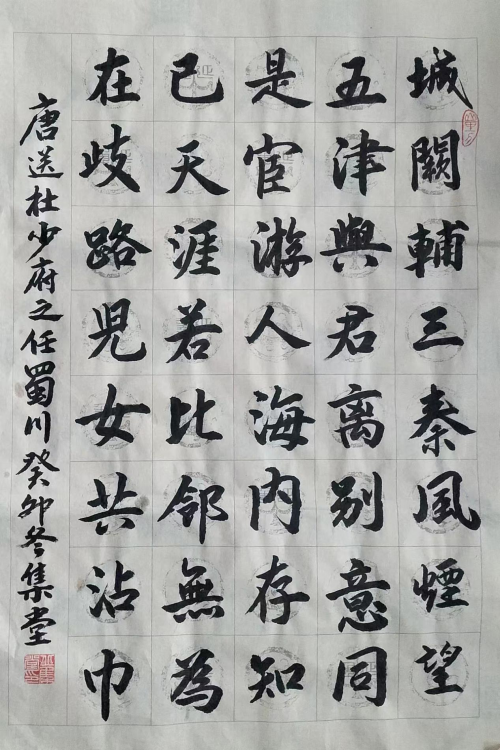 城闕輔三秦風煙望
五津與君离别意同
是宦游人海内存知
已天涯若比邻無為
在歧路児女共沾巾
唐送杜少府之任蜀川癸卯冬集堂